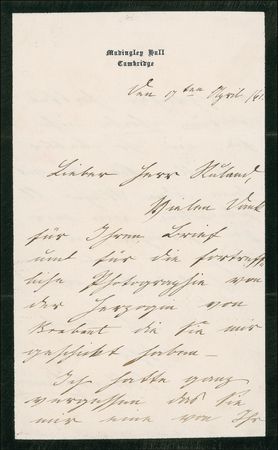 Madingley Hall
Cambridge
Den 9ten April /61.
Lieber Herr Ruland,
Vielen Dank
für Ihren Brief
und für die fortreff-
liche Photographie von
der Herzogin von
Brabant die Sie mir
geschickt haben –
Ich hatte ganz
vergessen das Sie
mir eine von Ihr